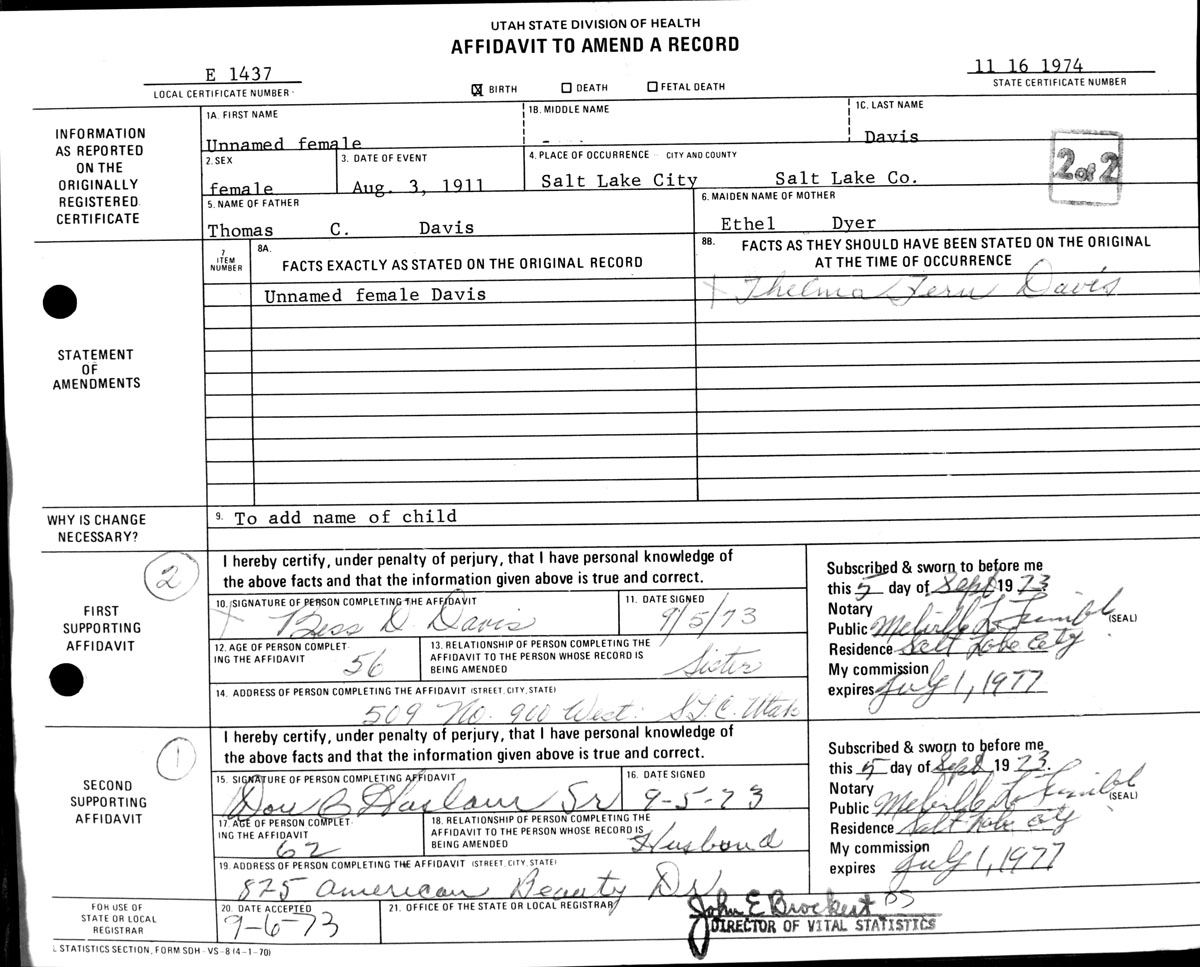 UTAH STATE DIVISION OF HEALTH
AFFIDAVIT TO AMEND A RECORD
E 1437
LOCAL CERTIFICATE NUMBER
☒ BIRTH ☐ DEATH ☐ FETAL DEATH
11 16 1974
STATE CERTIFICATE NUMBER
INFORMATION
AS REPORTED
ON THE
ORIGINALLY
REGISTERED
CERTIFICATE
1A. FIRST NAME
Unnamed female
1B. MIDDLE NAME
-
1C. LAST NAME
Davis
2. SEX
female
3. DATE OF EVENT
Aug. 3, 1911
4. PLACE OF OCCURRENCE CITY AND COUNTY
Salt Lake City Salt Lake Co.
2 of 2
5. NAME OF FATHER
Thomas C. Davis
6. MAIDEN NAME OF MOTHER
Ethel Dyer
STATEMENT
OF
AMENDMENTS
7
ITEM
NUMBER
8A.
FACTS EXACTLY AS STATED ON THE ORIGINAL RECORD
8B. FACTS AS THEY SHOULD HAVE BEEN STATED ON THE ORIGINAL
AT THE TIME OF OCCURRENCE
Unnamed female Davis
X Thelma Fern Davis
WHY IS CHANGE
NECESSARY?
9. To add name of child
2
FIRST
SUPPORTING
AFFIDAVIT
I hereby certify, under penalty of perjury, that I have personal knowledge of
the above facts and that the information given above is true and correct.
10. SIGNATURE OF PERSON COMPLETING THE AFFIDAVIT
X Bess D. Davis
11. DATE SIGNED
9/5/73
12. AGE OF PERSON COMPLET-
ING THE AFFIDAVIT
56
13. RELATIONSHIP OF PERSON COMPLETING THE
AFFIDAVIT TO THE PERSON WHOSE RECORD IS
BEING AMENDED
Sister
14. ADDRESS OF PERSON COMPLETING THE AFFIDAVIT (STREET, CITY, STATE)
509 No. 900 West. S.L.C. Utah
Subscribed & sworn to before me
this 5 day of Sept 1973
Notary
Public
(SEAL)
Residence Salt Lake City
My commission
expires July 1, 1977
1
SECOND
SUPPORTING
AFFIDAVIT
I hereby certify, under penalty of perjury, that I have personal knowledge of
the above facts and that the information given above is true and correct.
15. SIGNATURE OF PERSON COMPLETING AFFIDAVIT
Don B Haslam Sr
16. DATE SIGNED
9-5-73
17. AGE OF PERSON COMPLET-
ING THE AFFIDAVIT
62
18. RELATIONSHIP OF PERSON COMPLETING THE
AFFIDAVIT TO THE PERSON WHOSE RECORD IS
BEING AMENDED
Husband
19. ADDRESS OF PERSON COMPLETING THE AFFIDAVIT (STREET, CITY, STATE)
825 American Beauty Dr
Subscribed & sworn to before me
this 5 day of Sept 1973.
Notary
Public
(SEAL)
Residence Salt Lake City
My commission
expires July 1, 1977
FOR USE OF
STATE OR LOCAL
REGISTRAR
20. DATE ACCEPTED
9-6-73
21. OFFICE OF THE STATE OR LOCAL REGISTRAR
John E Brockert
DIRECTOR OF VITAL STATISTICS
L STATISTICS SECTION, FORM SDH - VS - 8 (4-1-70)